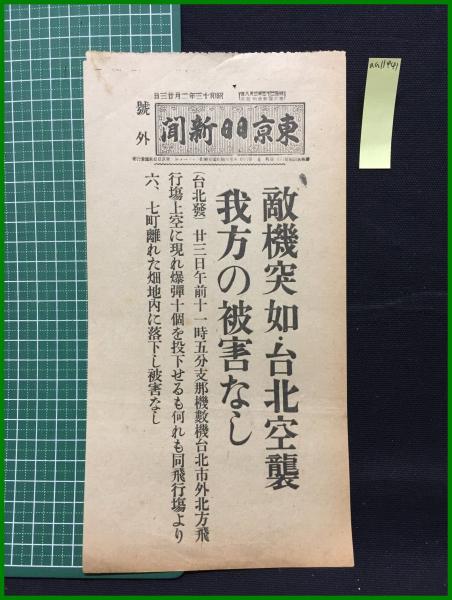 昭和十三年二月廿三日
東京日日新聞
號外
敵機突如・台北空襲
我方の被害なし
(台北發) 廿三日午前十一時五分支那機數機台北市外北方飛
行場上空に現れ爆彈十個を投下せるも何れも同飛行場より
六、七町離れた畑地內に落下し被害なし